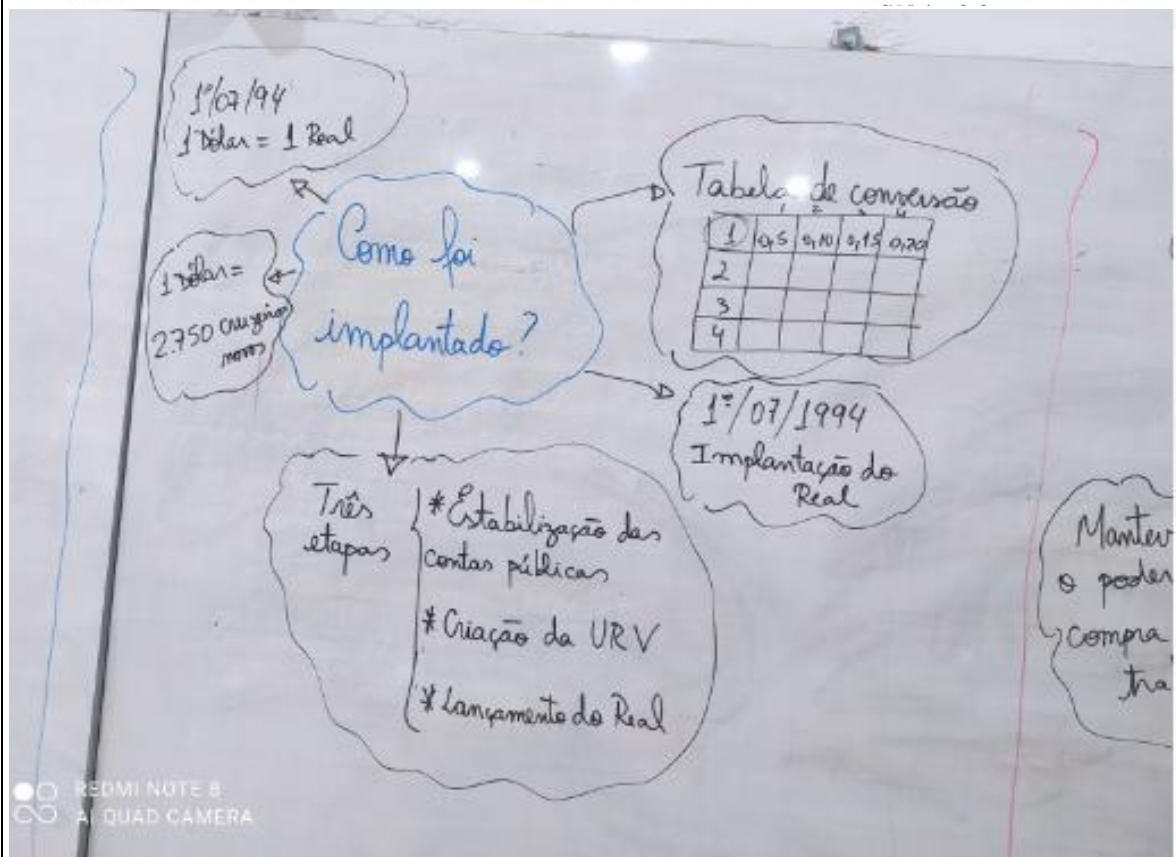 1º/07/94
1 Dólar = 1 Real
Como foi
implantado?
1 Dólar =
2.750 cruzeiros
novos
Tabela de conversão
1 2 3 4
1 0,5 0,10 0,15 0,20
2
3
4
1º/07/1994
Implantação do
Real
Três
etapas
* Estabilização das
contas públicas
* Criação da URV
* Lançamento do Real
Mantev
o poder
compra
tra
REDMI NOTE 8
AI QUAD CAMERA